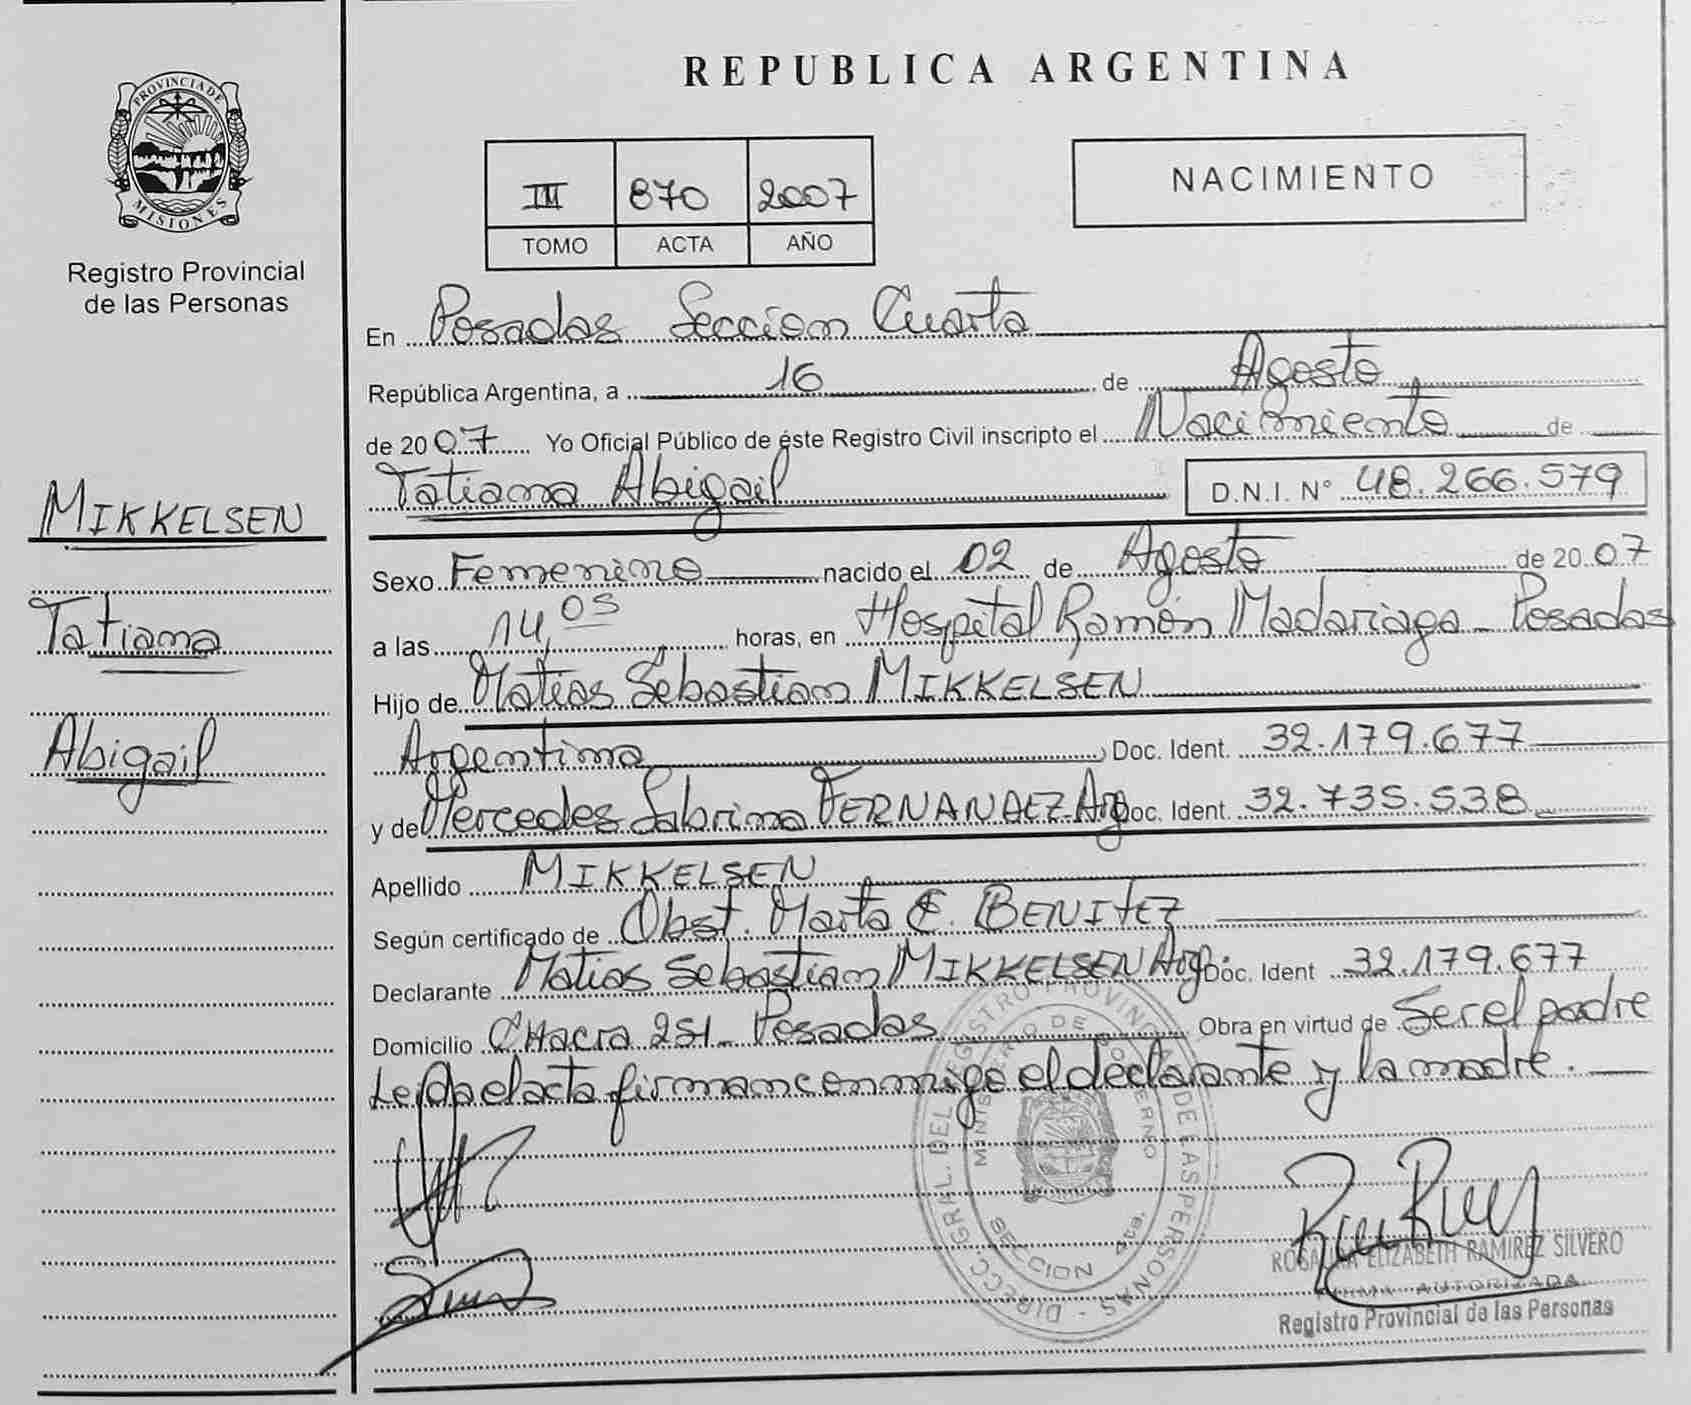 REPUBLICA ARGENTINA
PROVINCIA DE MISIONES
Registro Provincial
de las Personas
III 870 2007
TOMO ACTA AÑO
NACIMIENTO
MIKKELSEN
Tatiana
Abigail
En Posadas Seccion Cuarta
República Argentina, a 16 de Agosto
de 2007 Yo Oficial Público de éste Registro Civil inscripto el Nacimiento de
Tatiana Abigail D.N.I. N° 48.266.579
Sexo Femenino nacido el 02 de Agosto de 2007
a las 14,05 horas, en Hospital Ramón Madariaga - Posadas
Hijo de Matias Sebastian MIKKELSEN
Argentina Doc. Ident. 32.179.677
y de Mercedes Sabrina FERNANDEZ Arg Doc. Ident. 32.735.538
Apellido MIKKELSEN
Según certificado de Obst. Marta E. BENITEZ
Declarante Matias Sebastian MIKKELSEN Arg. Doc. Ident 32.179.677
Domicilio CHacra 251 - Posadas Obra en virtud de Ser el padre
Leida el acta firman conmigo el declarante y la madre.
DIRECC. GRAL. DEL REGISTRO PROVINCIAL DE LAS PERSONAS -
MINISTERIO DE GOBIERNO
SECCION 4ta.
ELIZABETH RAMIREZ SILVERO
FIRMA AUTORIZADA
Registro Provincial de las Personas